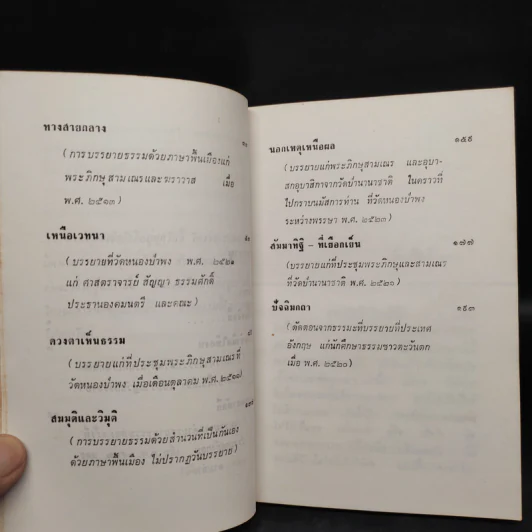 ทางสายกลาง
(การบรรยายธรรมด้วยภาษาพื้นเมืองแก่
พระภิกษุสามเณรและฆราวาส เมื่อ
พ.ศ. ๒๕๑๓)
เหนือเวทนา
(บรรยายที่วัดหนองป่าพง พ.ศ. ๒๕๒๑
แก่ ศาสตราจารย์ สัญญา ธรรมศักดิ์
ประธานองคมนตรี และคณะ)
ดวงตาเห็นธรรม
(บรรยายแก่ที่ประชุมพระภิกษุสามเณรที่
วัดหนองป่าพง เมื่อเดือนตุลาคม พ.ศ.
สมมุติและวิมุติ
(การบรรยายธรรมด้วยสำนวนที่เป็นกันเอง
ด้วยภาษาพื้นเมือง ไม่ปรากฏวันบรรยาย)
นอกเหตุเหนือผล ๑๕๙
(บรรยายแก่พระภิกษุสามเณร และอุบา-
สกอุบาสิกาจากวัดป่านานาชาติ ในคราวที่
ไปกราบนมัสการท่าน ที่วัดหนองป่าพง
ระหว่างพรรษา พ.ศ. ๒๕๒๓)
สัมมาทิฐิ - ที่เยือกเย็น ๑๗๗
(บรรยายแก่ที่ประชุมพระภิกษุและสามเณร
ที่วัดป่านานาชาติ พ.ศ. ๒๕๒๑)
ปัจฉิมกถา ๑๙๓
(ตัดตอนจากธรรมะที่บรรยายที่ประเทศ
อังกฤษ แก่นักศึกษาธรรมชาวตะวันตก
เมื่อ พ.ศ. ๒๕๒๐)